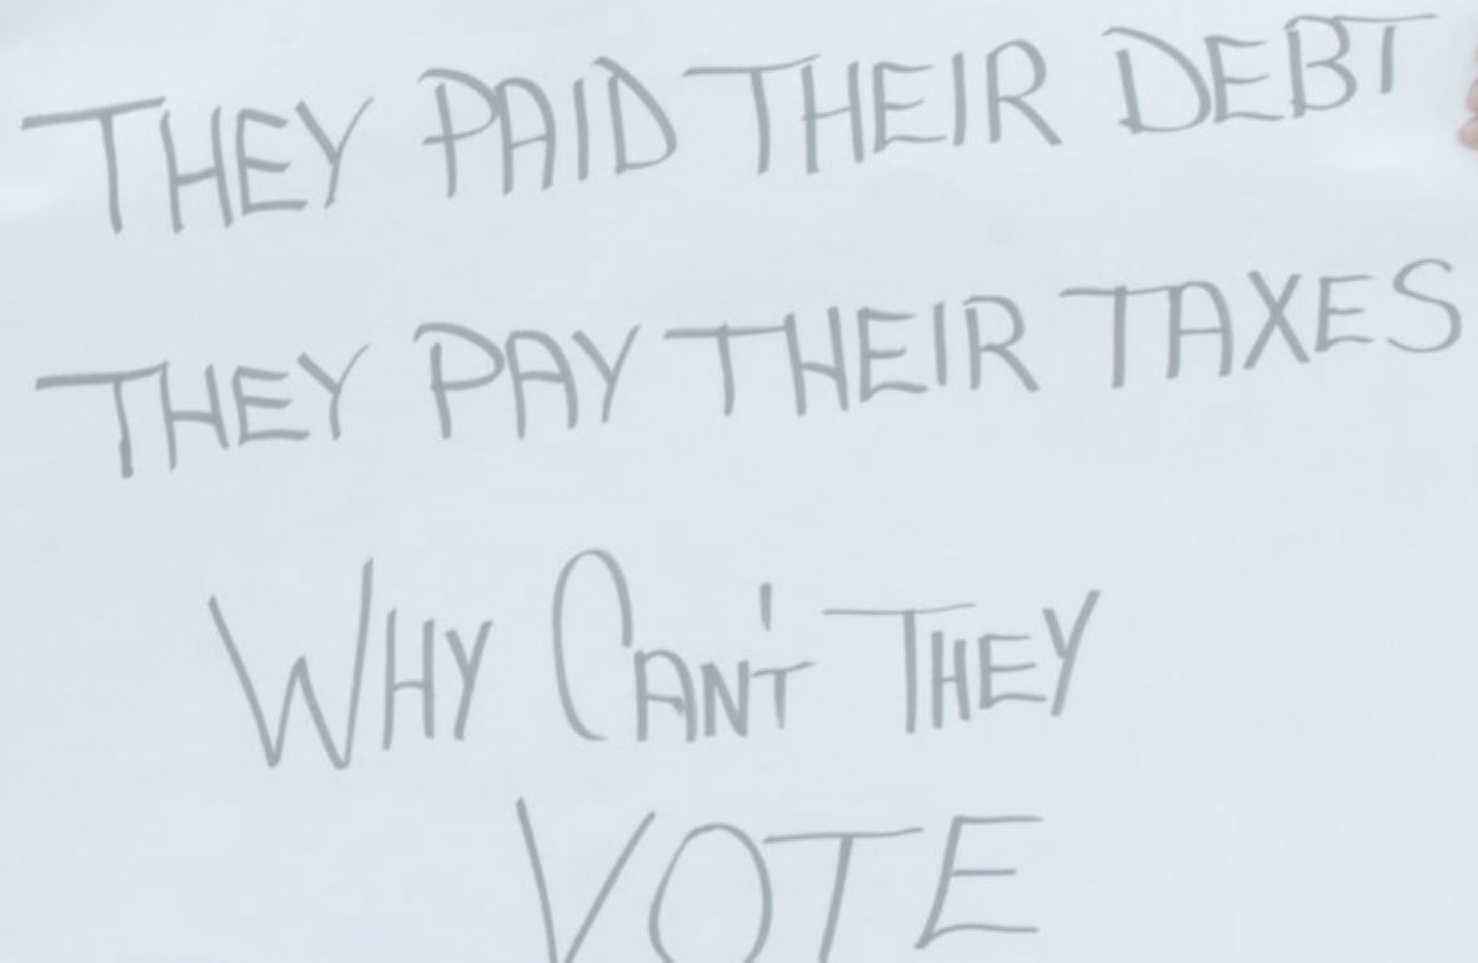 THEY PAID THEIR DEBT
THEY PAY THEIR TAXES
WHY CAN'T THEY
VOTE